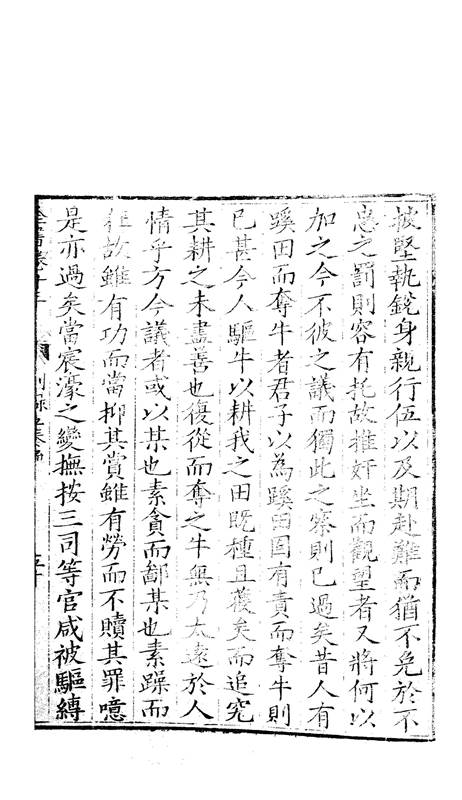 披堅執銳身親行伍以及期赴難而猶不免於不
忠之罰則容有托故推奸坐而觀望者又將何以
加之今不彼之議而獨此之察則已過矣昔人有
蹊田而奪牛者君子以為蹊田固有責而奪牛則
已甚今人驅牛以耕我之田既種且穫矣而追究
其耕之未盡善也復從而奪之牛無乃太遠於人
情乎方今議者或以某也素貪而鄙某也素躁而
狂故雖有功而當抑其賞雖有勞而不贖其罪噫
是亦過矣當宸濠之變撫按三司等官咸被驅縛